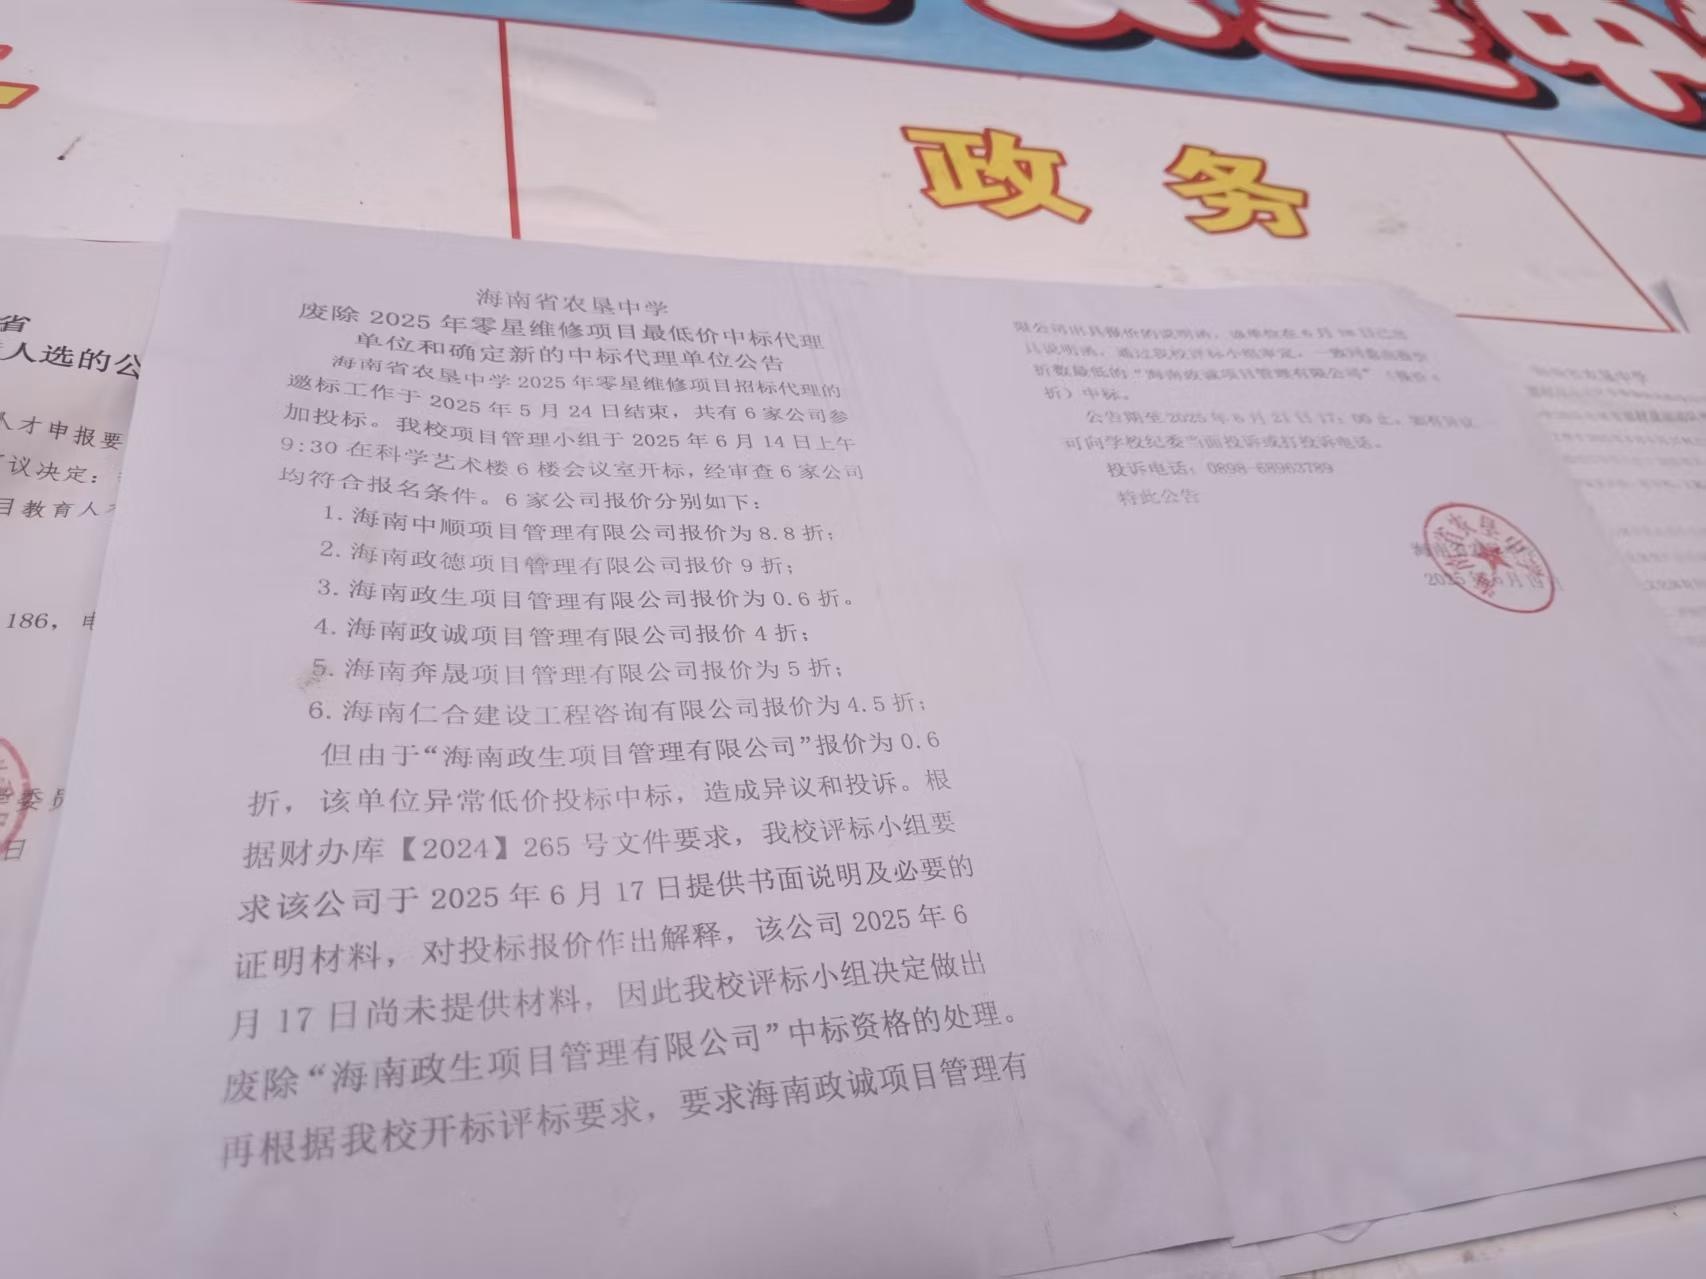 政务
海南省农垦中学
废除 2025 年零星维修项目最低价中标代理
单位和确定新的中标代理单位公告
海南省农垦中学 2025 年零星维修项目招标代理的
邀标工作于 2025 年 5 月 24 日结束，共有 6 家公司参
加投标。我校项目管理小组于 2025 年 6 月 14 日上午
9:30 在科学艺术楼 6 楼会议室开标，经审查 6 家公司
均符合报名条件。6 家公司报价分别如下：
1. 海南中顺项目管理有限公司报价为 8.8 折；
2. 海南政德项目管理有限公司报价 9 折；
3. 海南政生项目管理有限公司报价为 0.6 折。
4. 海南政诚项目管理有限公司报价 4 折；
5. 海南奔晟项目管理有限公司报价为 5 折；
6. 海南仁合建设工程咨询有限公司报价为 4.5 折；
但由于“海南政生项目管理有限公司”报价为 0.6
折，该单位异常低价投标中标，造成异议和投诉。根
据财办库【2024】265 号文件要求，我校评标小组要
求该公司于 2025 年 6 月 17 日提供书面说明及必要的
证明材料，对投标报价作出解释，该公司 2025 年 6
月 17 日尚未提供材料，因此我校评标小组决定做出
废除“海南政生项目管理有限公司”中标资格的处理。
再根据我校开标评标要求，要求海南政诚项目管理有
限公司出具报价的说明函，该单位在 6 月 18 日已出
具说明函，通过我校评标小组审定，一致同意由报价
折数最低的“海南政诚项目管理有限公司”（报价 4
折）中标。
公告期至 2025 年 6 月 21 日 17：00 止，如有异议
可向学校纪委当面投诉或打投诉电话。
投诉电话：0898-68963789
特此公告
海南省农垦中
2025 年 6 月 19 日
省
人选的公
人才申报要
议决定：
目教育人才
186，电
委员
日
海南省农垦中学